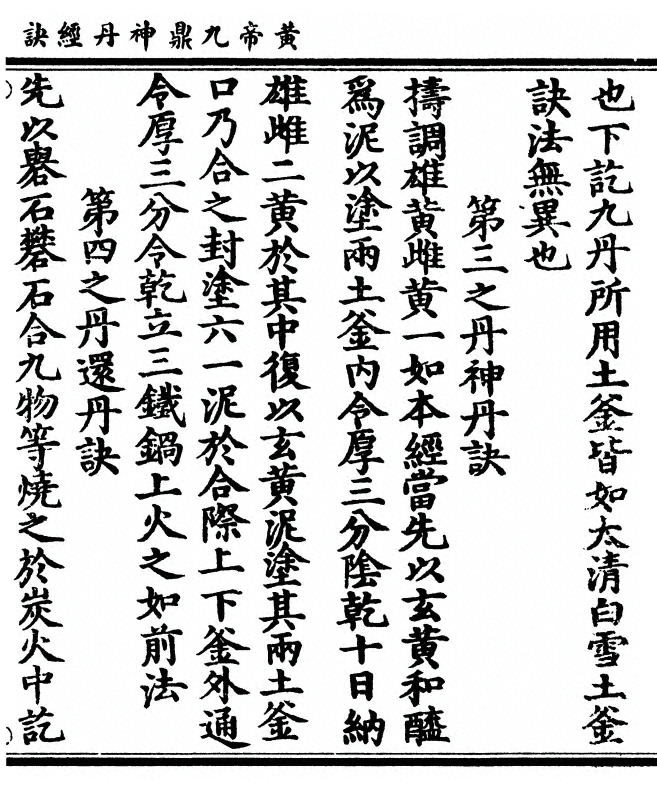 黃帝九鼎神丹經訣
也下訖九丹所用土釜皆如太清白雪土釜
訣法無異也
第三之丹神丹訣
擣調雄黃雌黃一如本經當先以玄黃和醯
爲泥以塗兩土釜內令厚三分陰乾十日納
雄雌二黃於其中復以玄黃泥塗其兩土釜
口乃合之封塗六一泥於合際上下釜外通
令厚三分令乾立三鐵鍋上火之如前法
第四之丹還丹訣
先以礜石礬石合九物等燒之於炭火中訖